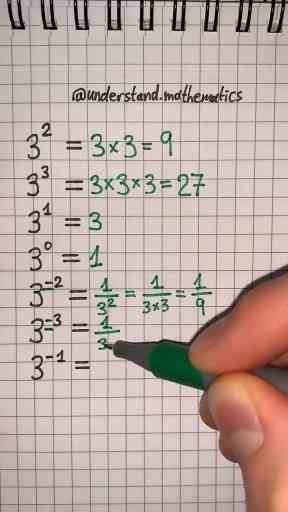 @understand.mathematics
3² = 3×3 = 9
3³ = 3×3×3 = 27
3¹ = 3
3⁰ = 1
3⁻² = 1/3² = 1/3×3 = 1/9
3⁻³ = 1/3
3⁻¹ =